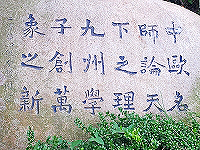 中歐名
師論天
下之理
九州學
子創萬
象之新